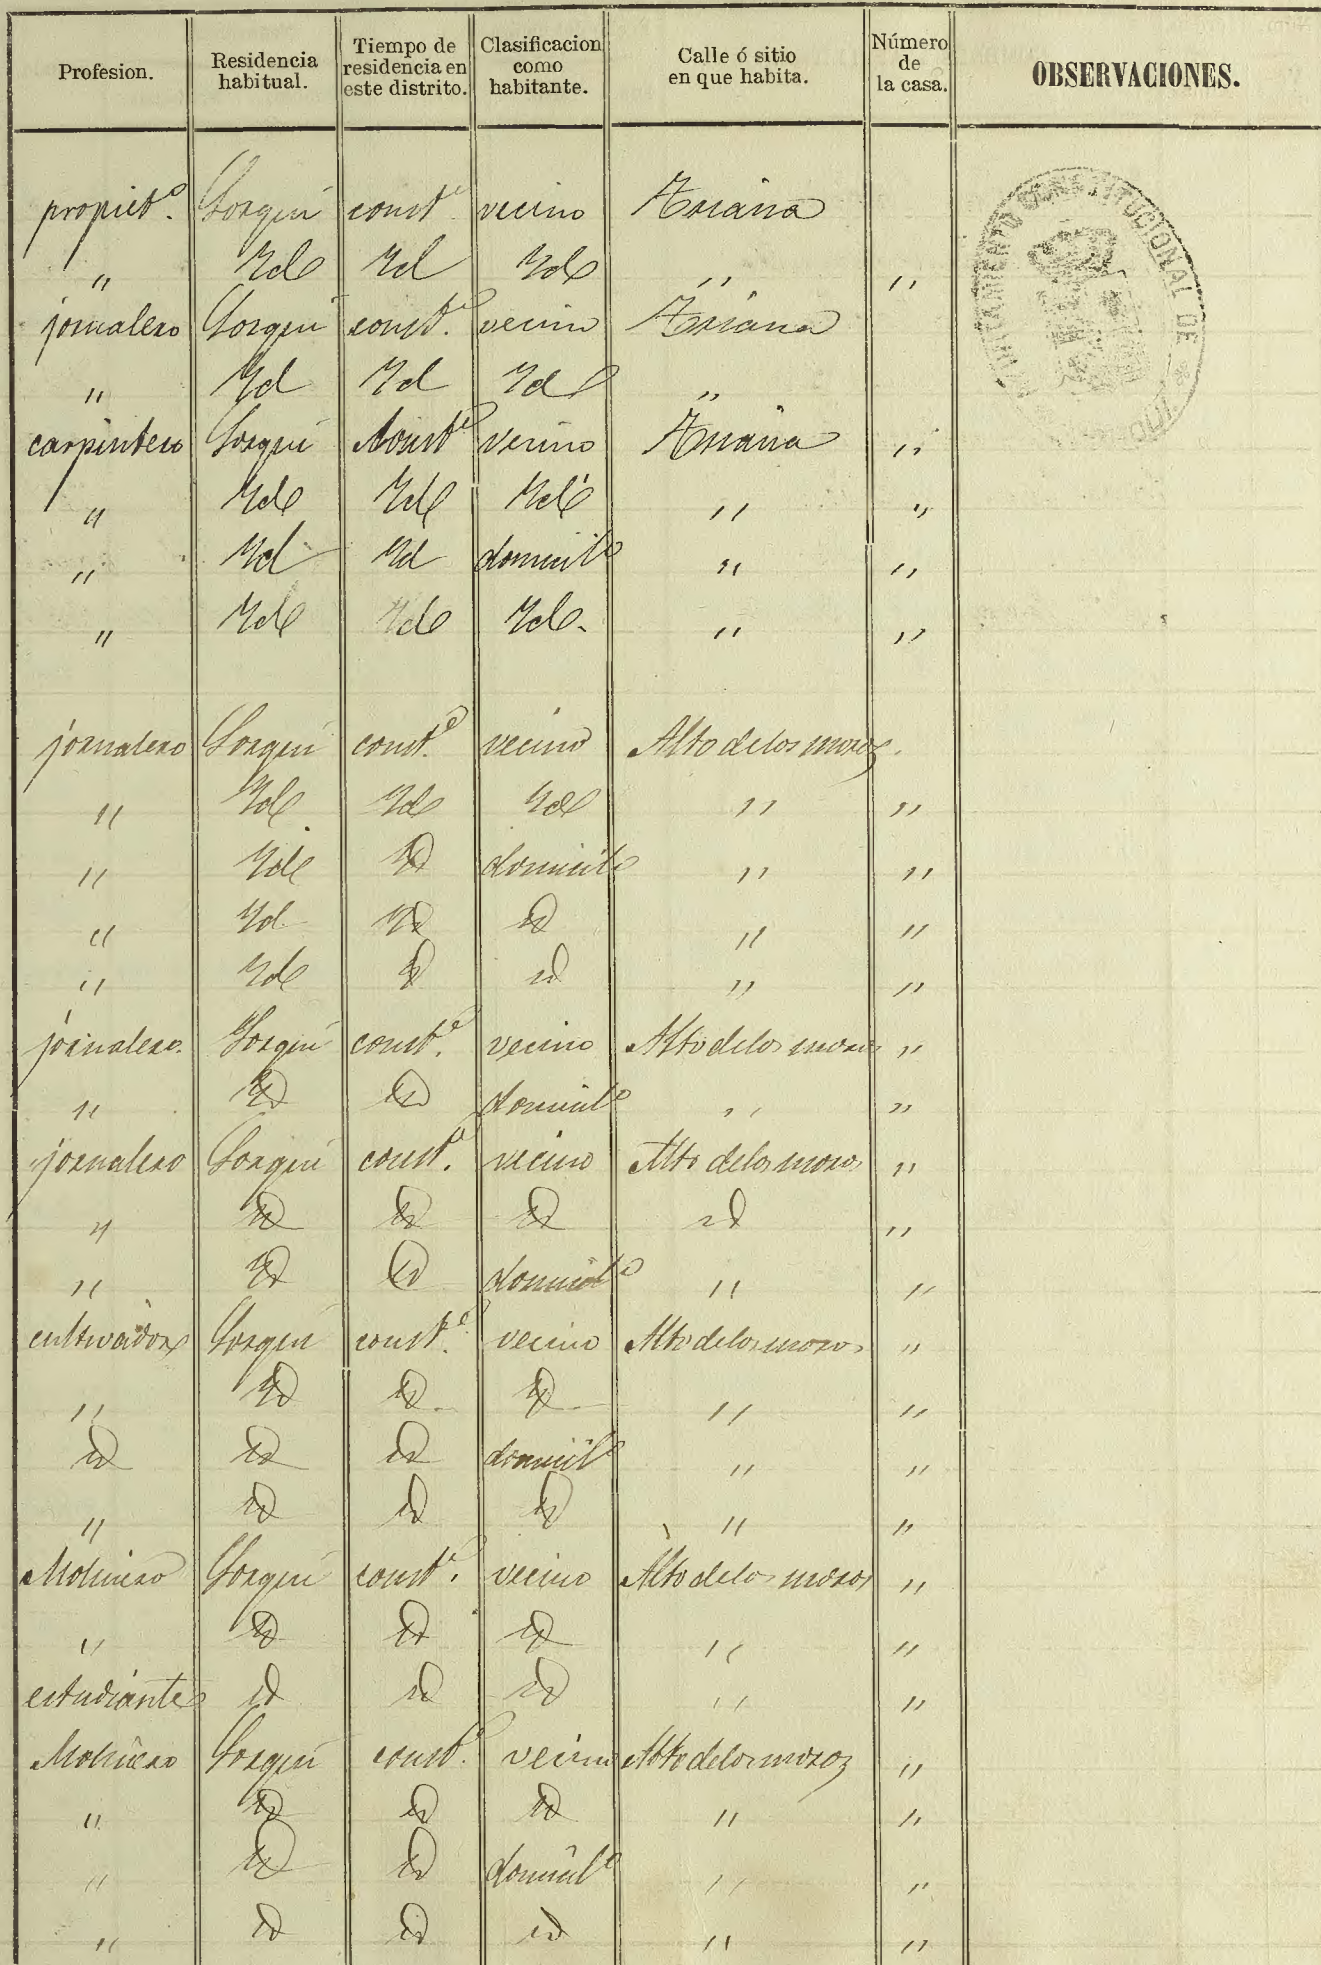 Profesion. Residencia habitual. Tiempo de residencia en este distrito. Clasificacion como habitante. Calle ó sitio en que habita. Número de la casa. OBSERVACIONES.
AYUNTAMIENTO CONSTITUCIONAL DE
propiet.º Lorquí const.e vecino Triana
" Id Id Id " "
jornalero Lorquí const.e vecino Triana
" Id Id Id "
carpintero Lorquí Const.e vecino Triana "
" Id Id Id " "
" Id Id domicil.º " "
" Id Id Id. " "
jornalero Lorquí const.e vecino Alto de los moros.
" Id Id Id " "
" Id id domicil.º " "
" Id id id " "
" Id id id " "
jornalero. Lorquí const.e vecino Alto de los moros "
" id id domicil.º " "
jornalero Lorquí const.e vecino Alto de los moros "
" id id id id "
" id id domicil.º " "
cultivador Lorquí const.e vecino Alto de los moros "
" id id id " "
id id id domicil.º " "
" id id id " "
Molinero Lorquí const.e vecino Alto de los moros "
" id id id " "
estudiante id id id " "
Molinero Lorquí const.e vecino Alto de los moros "
" id id id " "
" id id domicil.º " "
" id id id " "